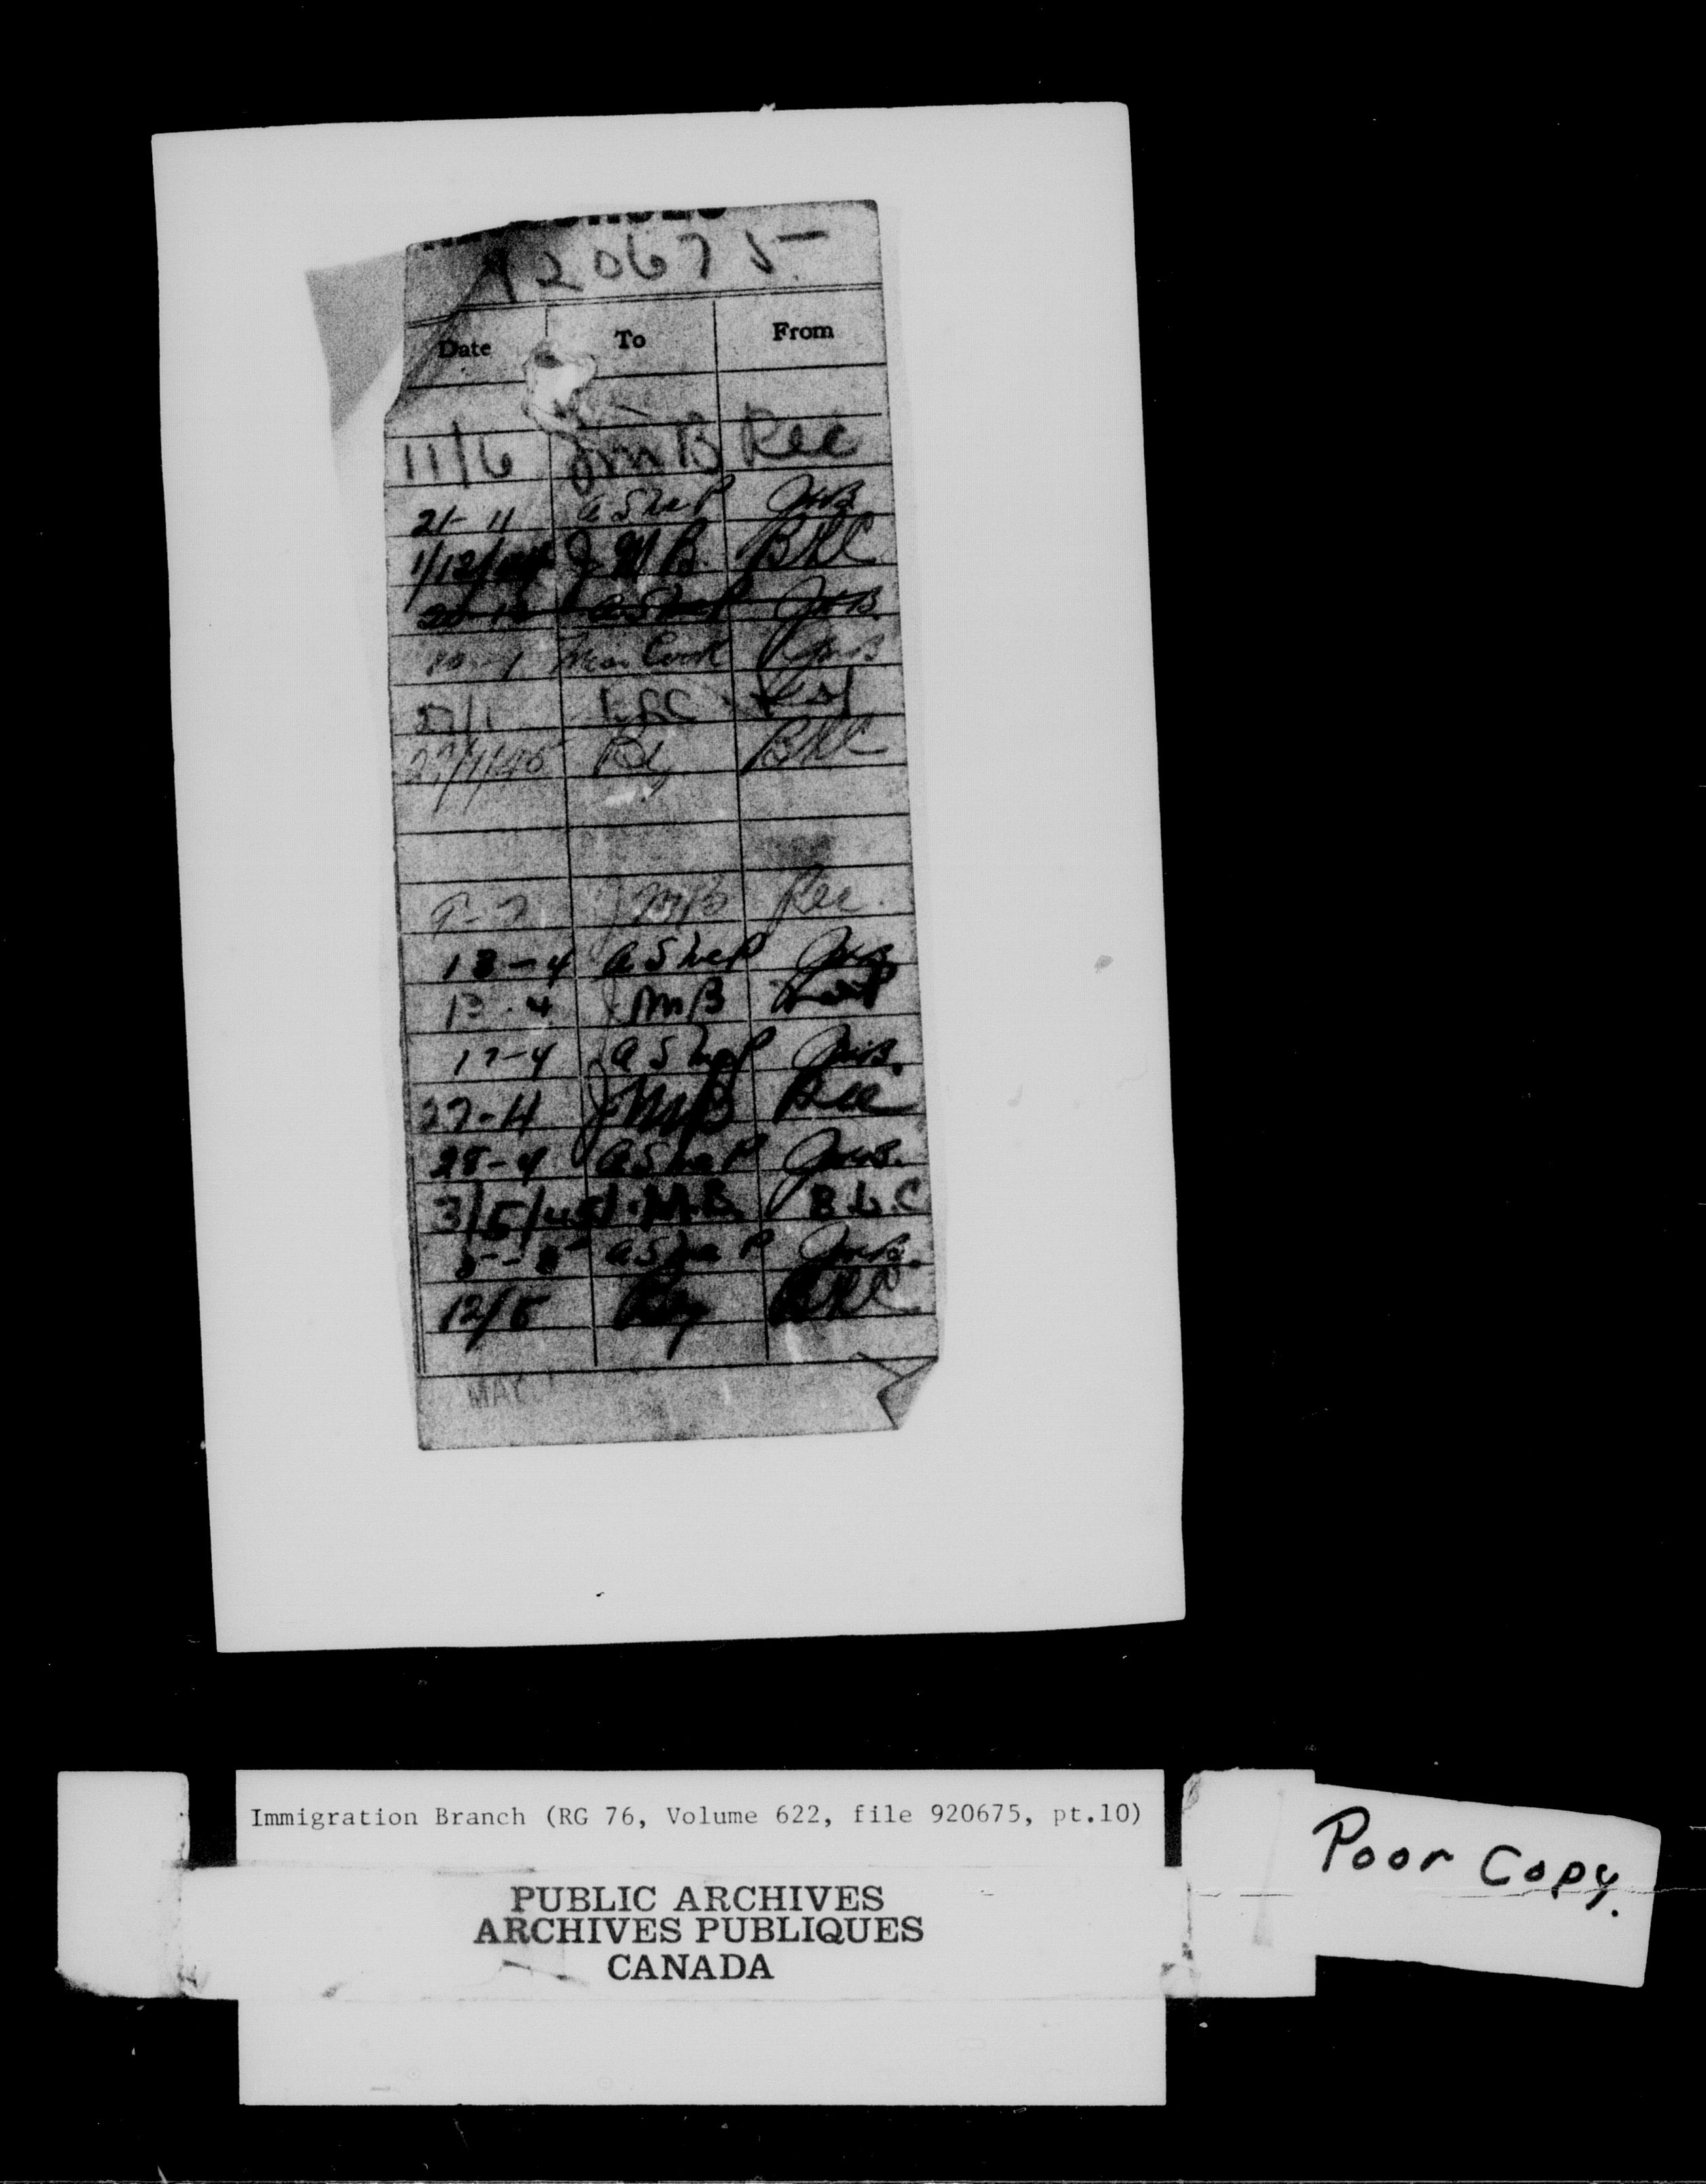 920675
Date To From
11/6 JMB Rec
21-11 A Shep JMB
1/12/44 J.M.B. BKC
A Shep JMB
Cook JMB
27/1
27/1/45 BKC
9-2 JMB Rec.
13-4 A Shep JMB
13-4 JMB
17-4 A Shep JMB.
27-4 JMB Rec
28-4 A Shep JMB.
3/5/45 J.M.B. B.L.C
5-5 A Shep JMB.
12/5 BKC
MAY
Immigration Branch (RG 76, Volume 622, file 920675, pt.10)
PUBLIC ARCHIVES
ARCHIVES PUBLIQUES
CANADA
Poor Copy.